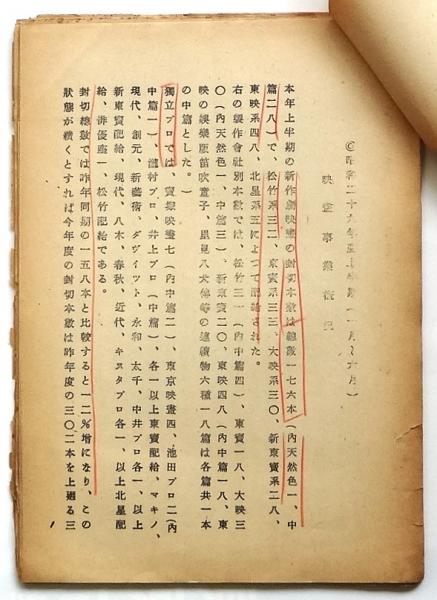 ◎昭和二十九年度上半期(一月〜六月)
映画事業概況
本年上半期の新作劇映画の封切本数は総数一七六本(内天然色一、中
篇二八)で、松竹系三二、東宝系三三、大映系三〇、新東宝系二八、
東映系四八、北星系五によつて配給された。
右の製作会社別本数では、松竹三一(内中篇四)、東宝一八、大映三
〇(内天然色一、中篇三)、新東宝二〇、東映四八(内中篇一八、東
映の娯楽版笛吹童子、里見八犬傳等の連続物六種一八篇は各篇共一本
の中篇とした。)
獨立プロでは、宝塚映畫七(内中篇二)、東京映畫四、池田プロ二(内
中篇一)、滝村プロ、井上プロ(中篇)、各一以上東宝配給、マキノ、
現代、創元、新藝術、ダヴイツト、永和、太千、中井プロ各一、以上
新東宝配給、現代、八木、春秋、近代、キヌタプロ各一、以上北星配
給、俳優座一、松竹配給である。
封切総数では昨年同期の一五八本と比較すると一二%増になり、この
状態が続くとすれば今年度の封切本数は昨年度の三〇二本を上廻る三